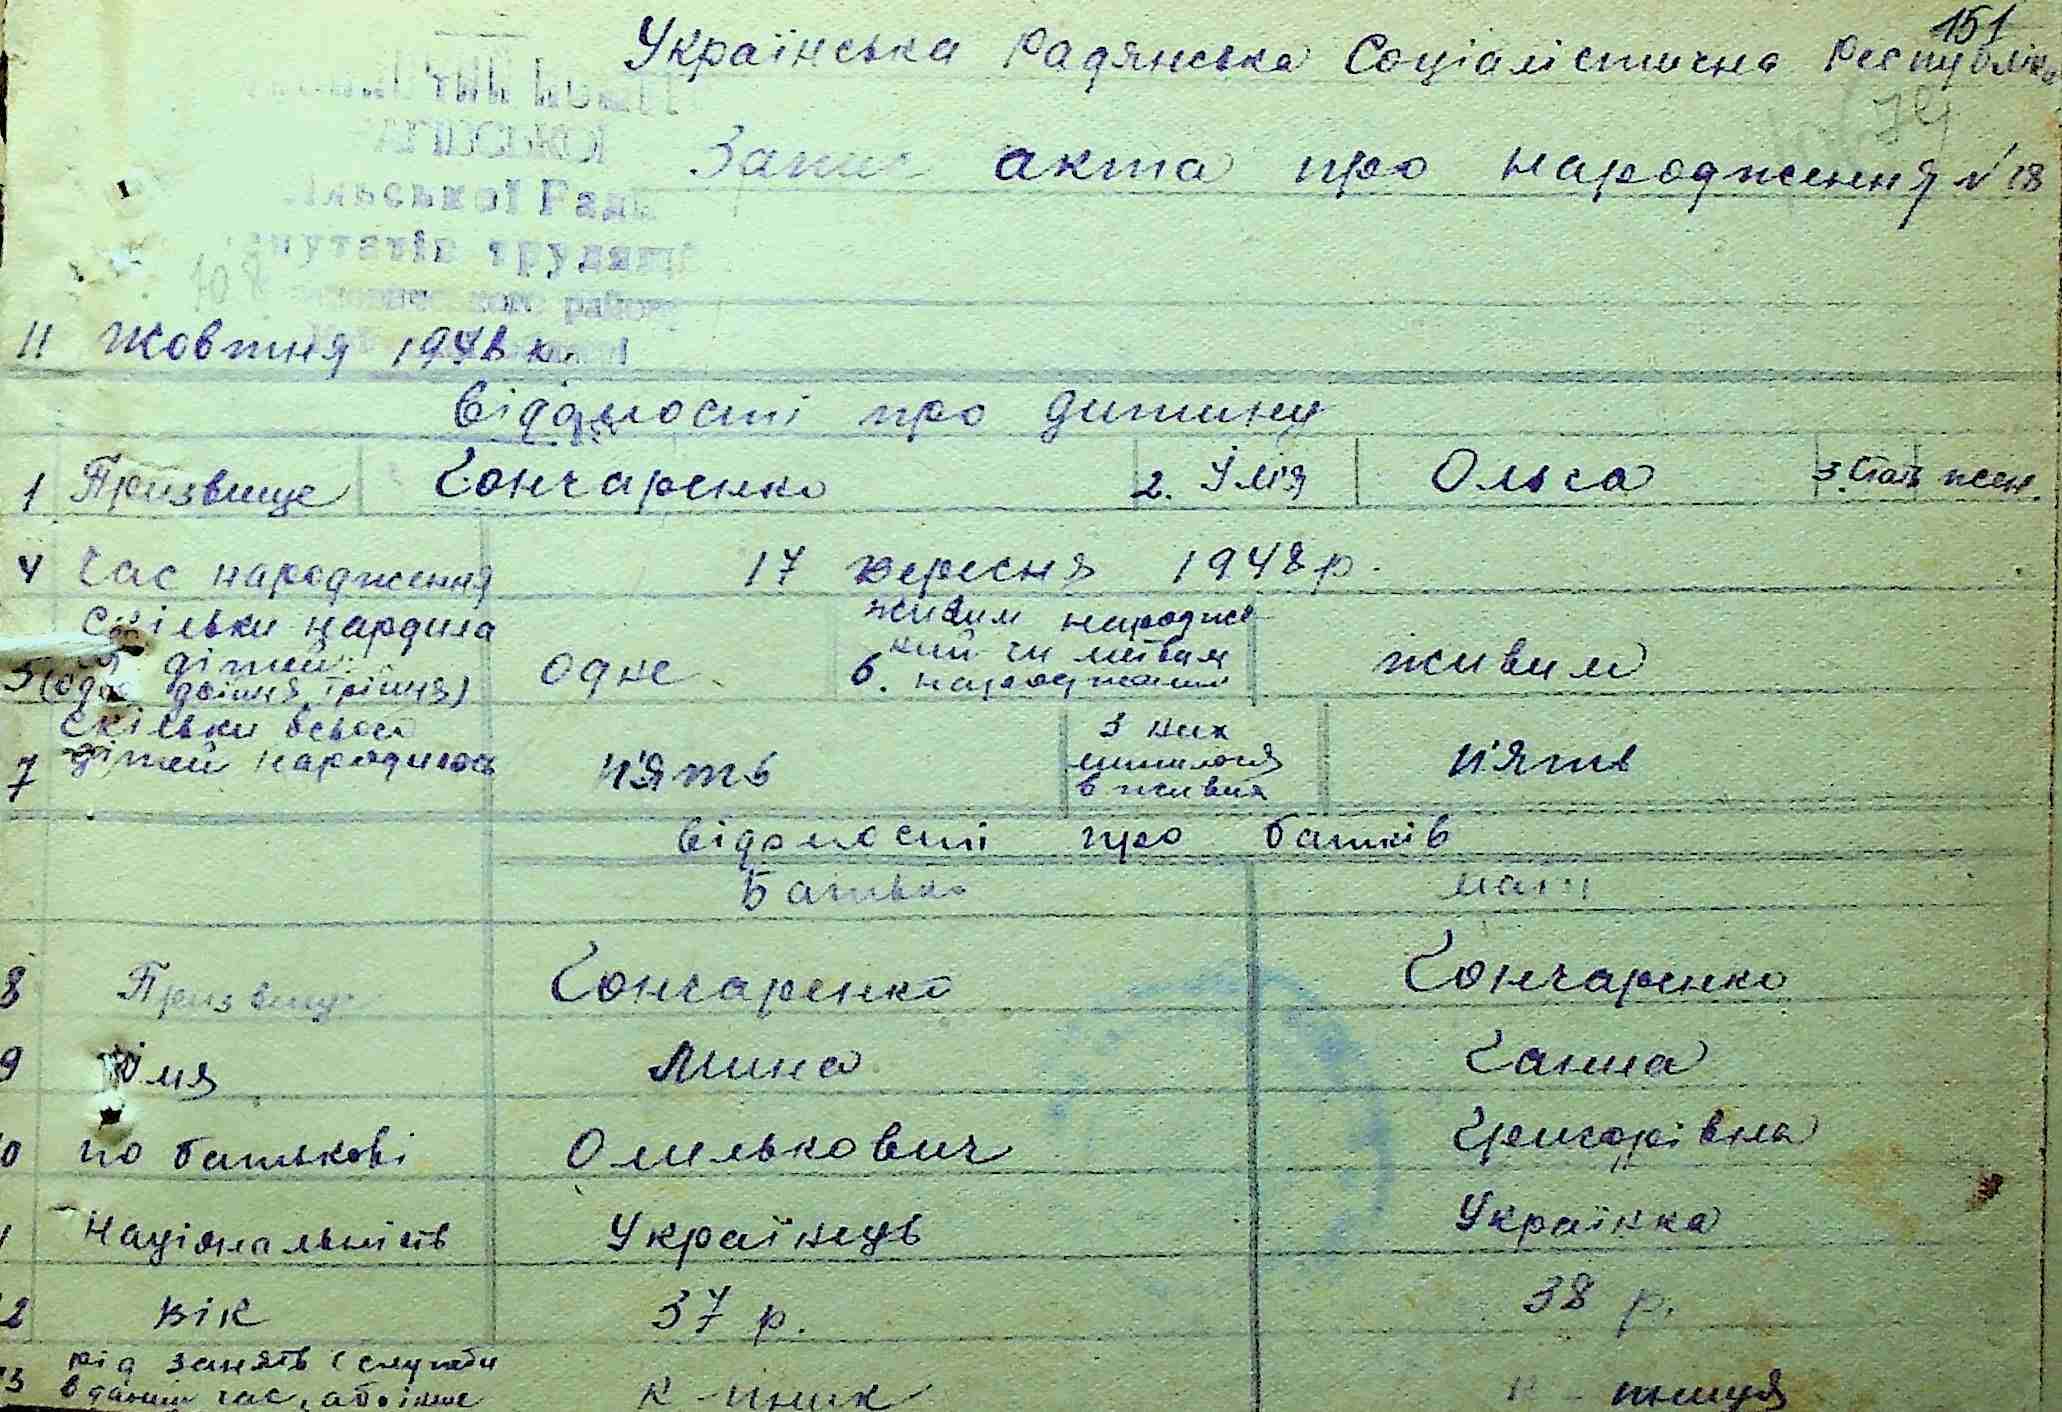 151
Українська Радянська Соціалістична Республіка
Запис акта про народження № 18
сільської Ради
депутатів трудящих
району
11 Жовтня 1948 р.
Відомості про дитину
1 Призвище Гончаренко 2. Ім'я Ольга 3. Стать жен.
4 Час народження 17 вересня 1948 р.
5 Скільки нардила дітей: (одне двійня, трійня) одне 6. живим народже
ний чи мертвим народжений живим
7 Скільки всього дітей народилось п'ять З них лишилося в живих п'ять
Відомості про батьків
Батько мати
8 Призвище Гончаренко Гончаренко
9 Імя Мина Ганна
10 по батькові Омелькович Григорівна
Національність Українець Українка
12 вік 37 р. 38 р.
13 рід занять (служби в даний час, або інше к-пник к-пниця